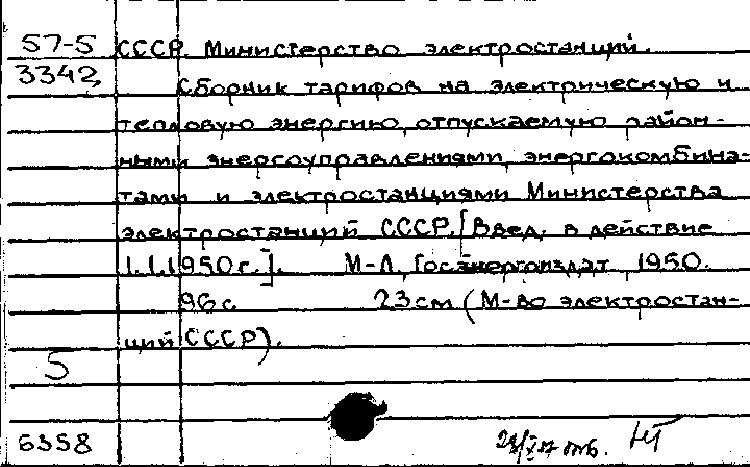 57-5 СССР. Министерство электростанций.
3342 Сборник тарифов на электрическую и
тепловую энергию, отпускаемую район-
ными энергоуправлениями, энергокомбина-
тами и электростанциями Министерства
электростанций СССР. [Введ. в действие
1.1.1950 г.]. М-Л, Госэнергоиздат, 1950.
96 с. 23 см (М-во электростан-
ций СССР).
5
6358